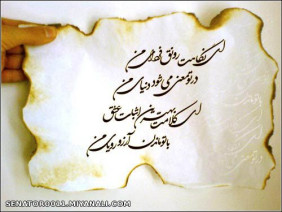 ای نگاهت رونق فردای من
در تو معنی می شود دنیای من
ای کلامت بهترین اثبات عشق
با تو ماندن آرزو رویای من
SENATOR0011.MIYANALI.COM